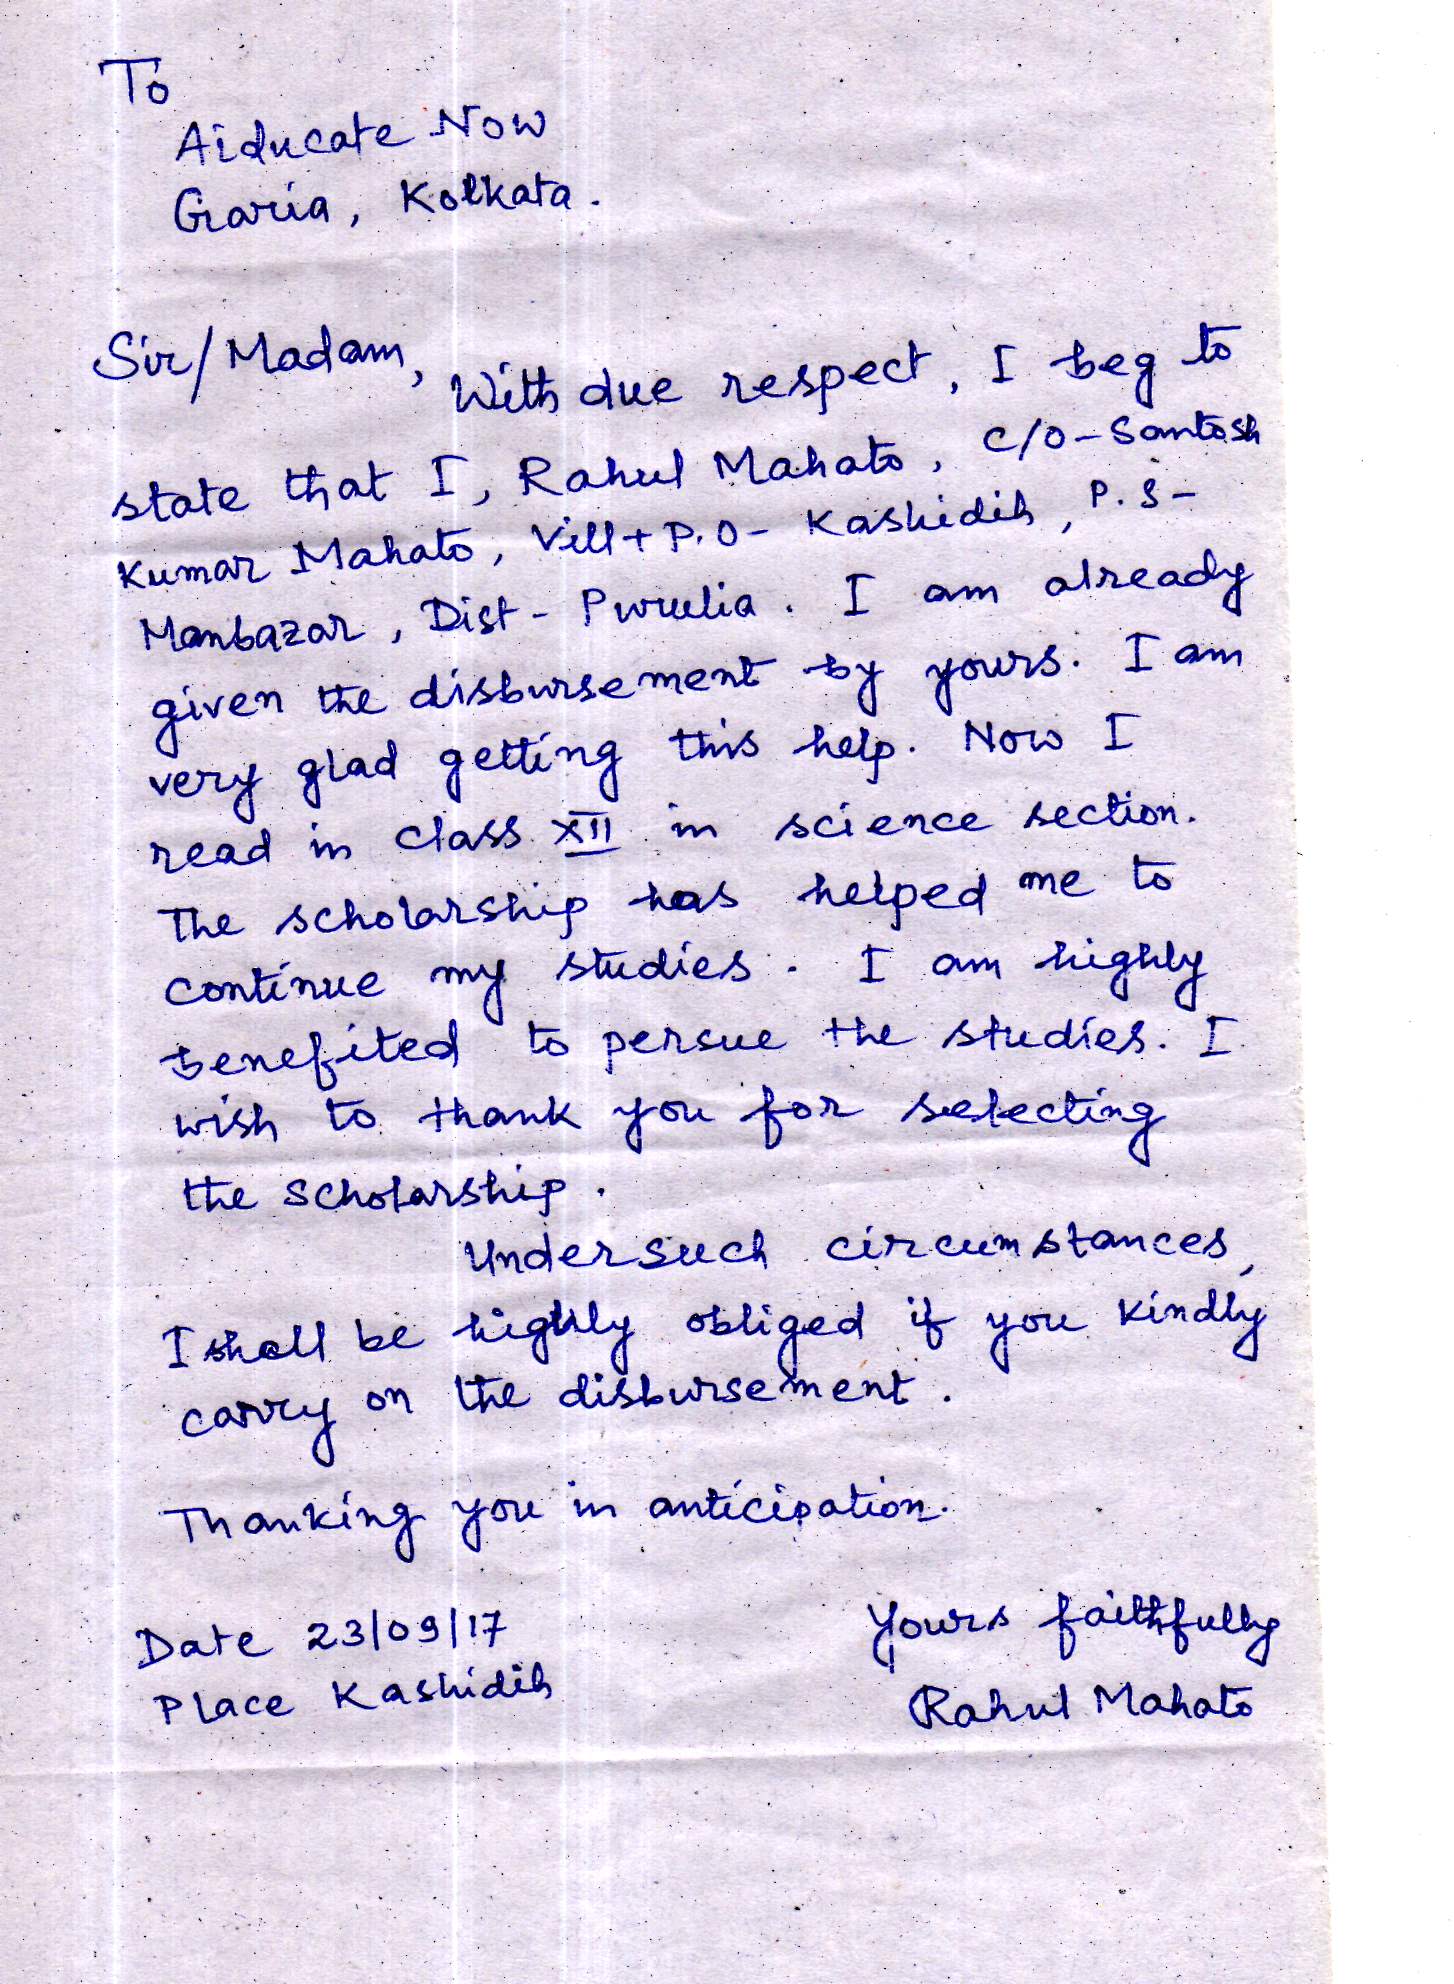 To
Aiducate Now
Garia, Kolkata.
Sir/Madam,
With due respect, I beg to
state that I, Rahul Mahato, C/O-Santosh
Kumar Mahato, Vill+P.O- Kashidih, P.S-
Manbazar, Dist- Purulia. I am already
given the disbursement by yours. I am
very glad getting this help. Now I
read in class XII in science section.
The scholarship has helped me to
continue my studies. I am highly
benefited to persue the studies. I
wish to thank you for selecting
the scholarship.
Undersuch circumstances,
I shall be highly obliged if you kindly
carry on the disbursement.
Thanking you in anticipation.
Date 23/09/17
Place Kashidih
Yours faithfully
Rahul Mahato